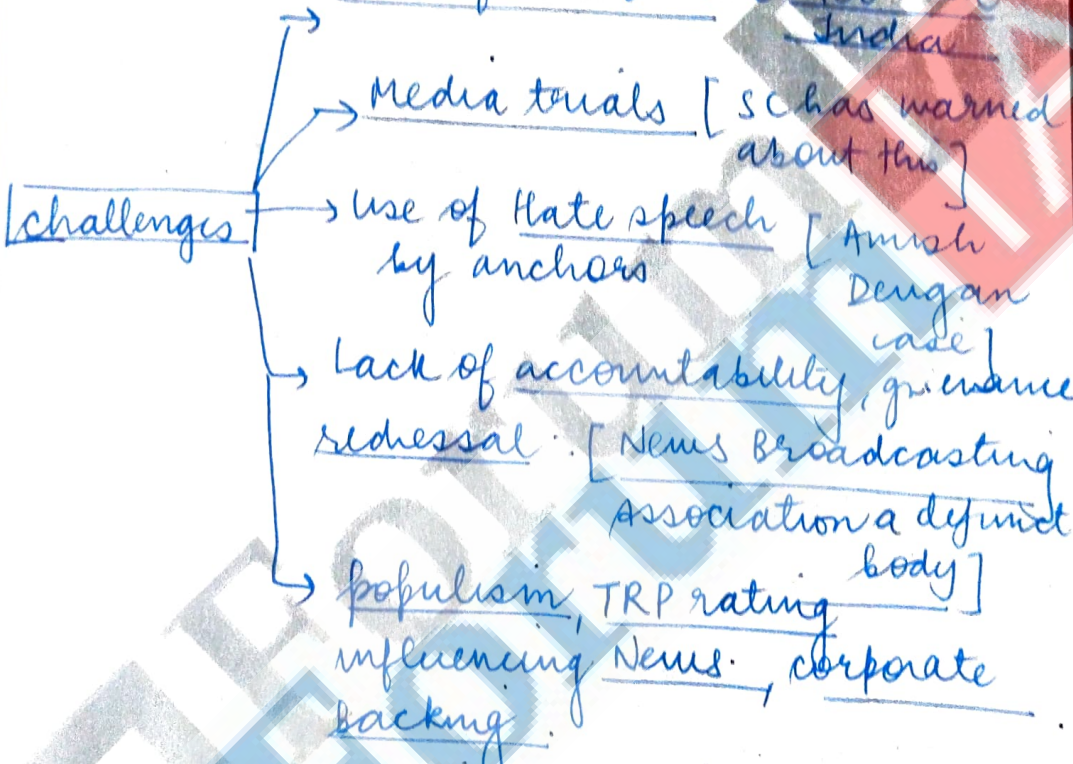 India
Media trials [SC has warned
about this]
challenges
Use of Hate speech [Amish
by anchors
Devgan
case]
Lack of accountability, grievance
redressal : [News Broadcasting
Association a defunct
body]
populism, TRP rating
influencing News, corporate
Backing.
Forum
Forum